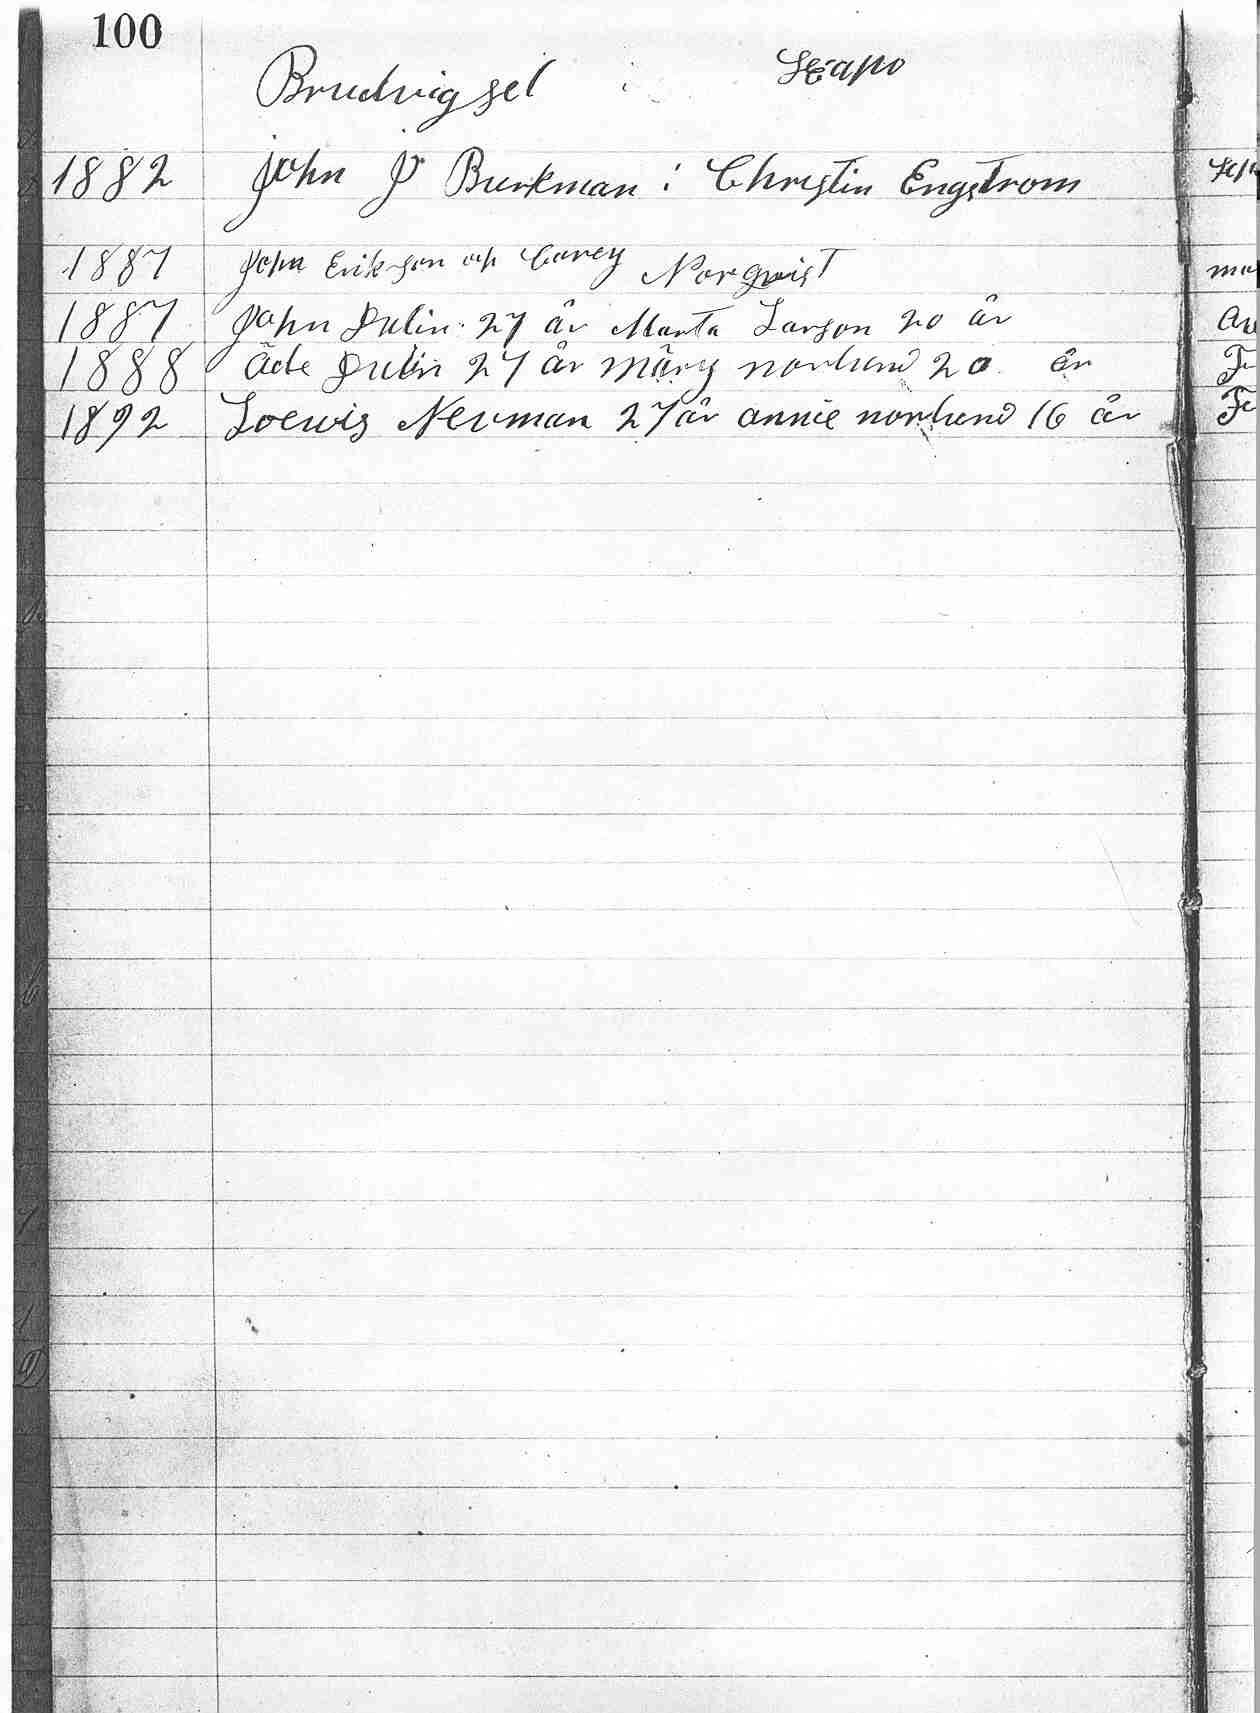 100
Brudvigsel i
1882 John P Burkman : Christin Engstrom Sep
1887 John Erikson och Carey Norqvist ma
1887 John Julin 27 år Marta Larson 20 år
1888 Julin 27 år märy norlund 20 år
1892 Loewis Neuman 27 år annie norlund 16 år